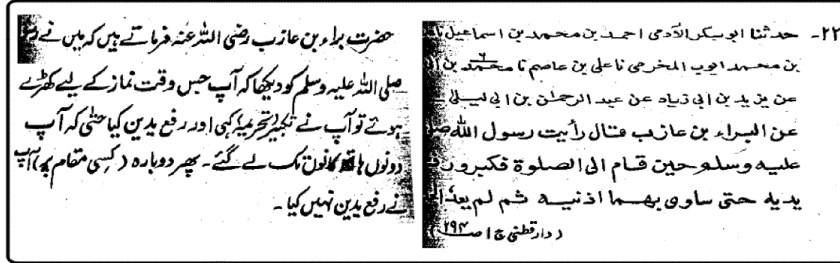 ۲۲- حدثنا ابوبکر الآدمی احمد بن محمد بن اسماعیل نا
بن محمد ایوب المخرمی نا علی بن عاصم نا محمد بن
عن یزید بن ابی زیاد عن عبد الرحمٰن بن ابی لیلی
عن البراء بن عازب قال رأیت رسول اللہ
علیہ وسلم حین قام الی الصلوٰۃ فکبر و
یدیہ حتی ساوی بهما اذنیہ ثم لم یعد
(دارقطنی ج ۱ ص ۲۹۴)
حضرت براء بن عازب رضی اللہ عنہ فرماتے ہیں کہ میں نے
صلی اللہ علیہ وسلم کو دیکھا کہ آپ جس وقت نماز کے لیے کھڑے
ہوئے تو آپ نے تکبیر تحریمہ کہی اور رفع یدین کیا حتٰی کہ آپ
دونوں ہاتھ کانوں تک لے گئے۔ پھر دوبارہ (کسی مقام پر) آپ
نے رفع یدین نہیں کیا۔